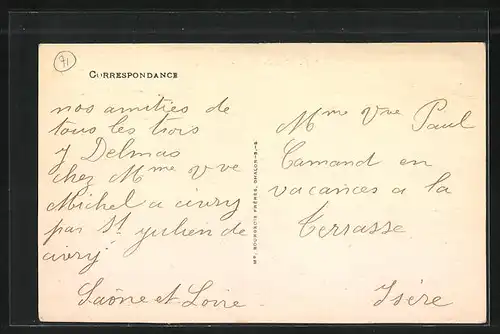 71
CORRESPONDANCE
nos amitiés de
tous les trois
y Delmas
chez Mme vve
Michel a civry
par St julien de
civry
Saône et Loire
IMP. BOURGEOIS FRÈRES, CHALON-S-S
Mme Vve Paul
Camand en
vacances a la
Terrasse
Isère